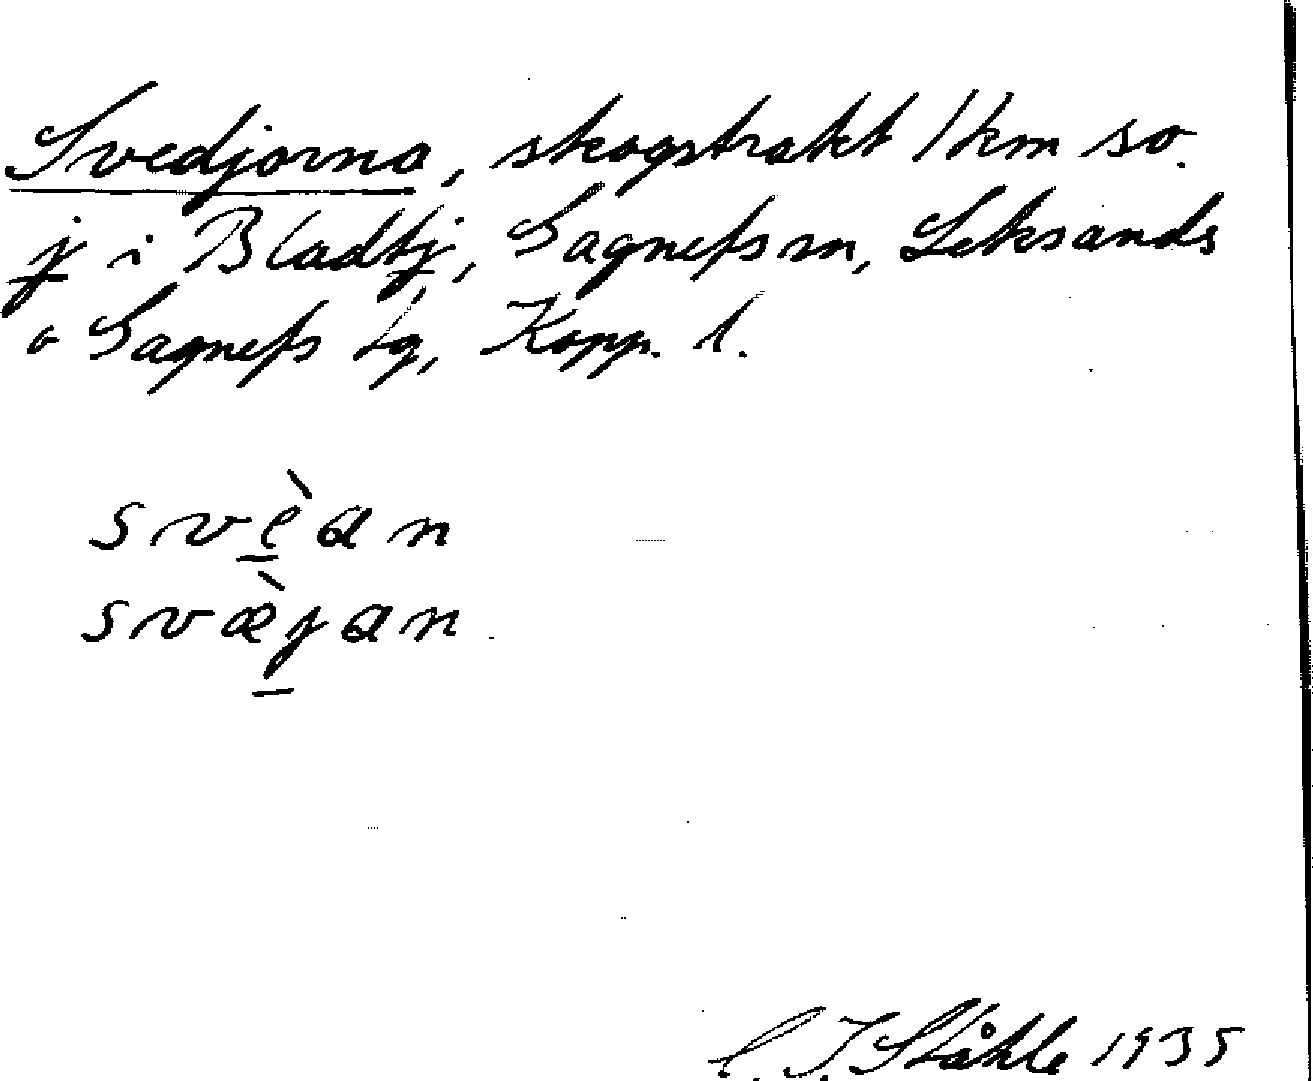 Svedjorna, skogstrakt 1 km so.
j i Bladbj, Gagnefs sn, Leksands
o Gagnefs tg, Kopp. l.
svèan
svæ̀jan
C. I. Ståhle 1935